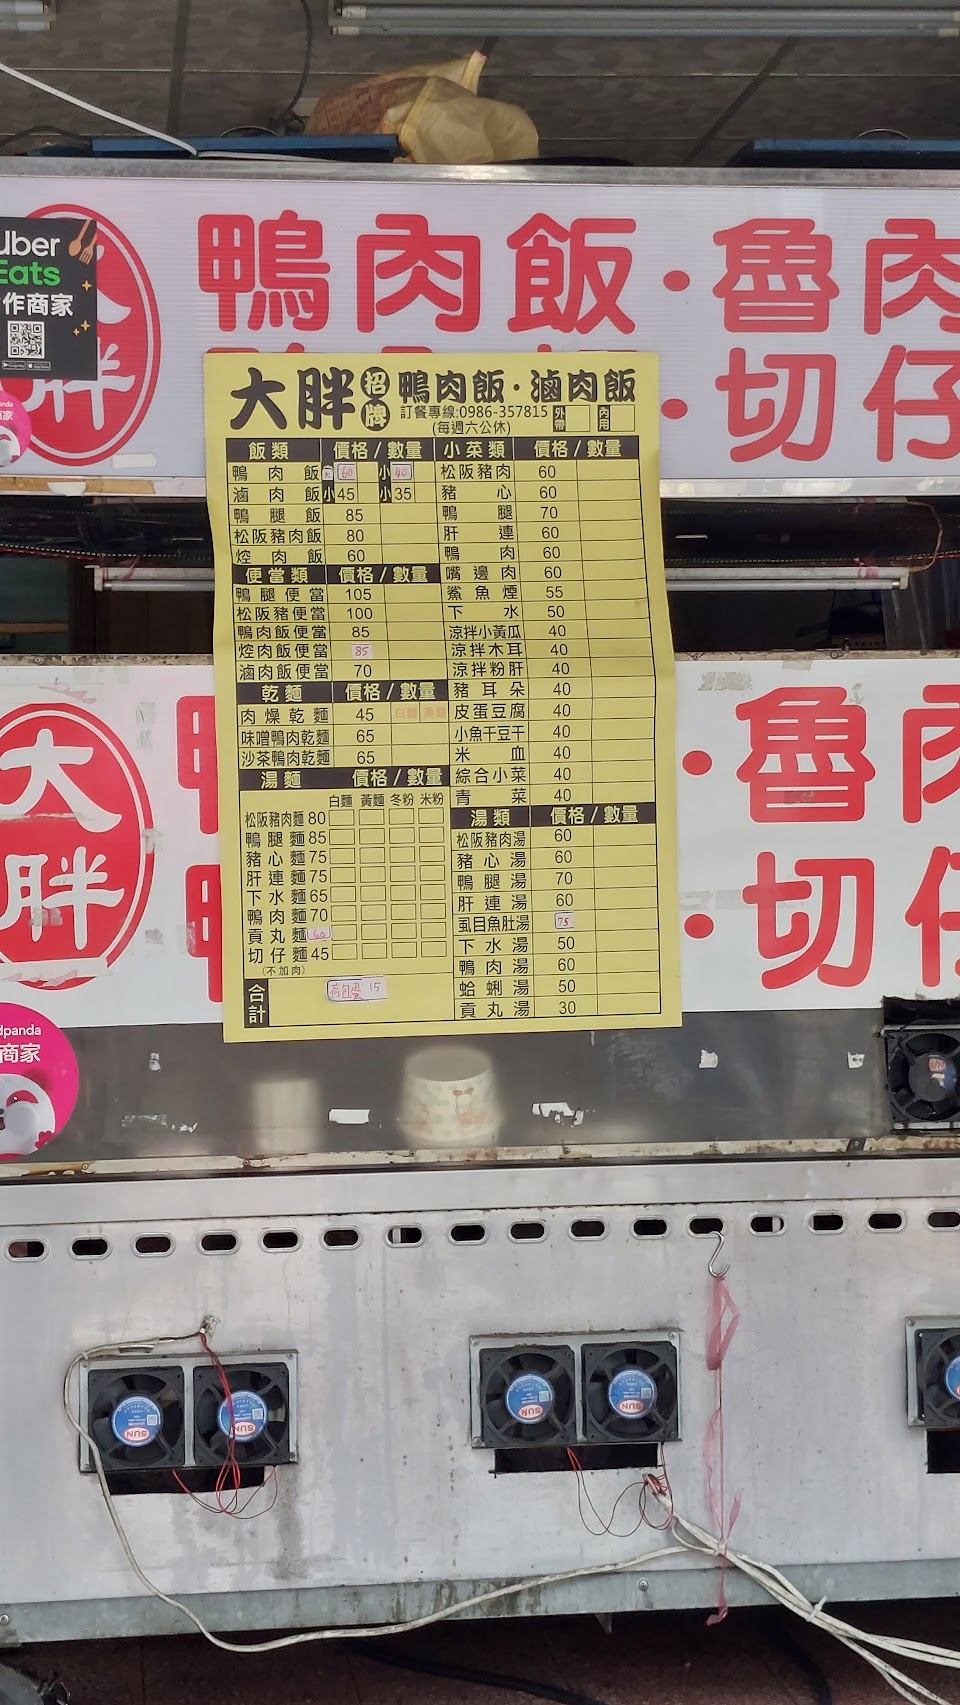 Uber
Eats
作商家
鴨肉飯·魯肉
切仔
大胖
招牌
鴨肉飯·滷肉飯
訂餐專線:0986-357815
(每週六公休)
外帶
內用
飯類 價格/數量
鴨肉飯 大 60 小 40
滷肉飯 小 45 小 35
鴨腿飯 85
松阪豬肉飯 80
焢肉飯 60
便當類 價格/數量
鴨腿便當 105
松阪豬便當 100
鴨肉飯便當 85
焢肉飯便當 85
滷肉飯便當 70
乾麵 價格/數量
肉燥乾麵 45 白麵 黃麵
味噌鴨肉乾麵 65
沙茶鴨肉乾麵 65
湯麵 價格/數量
白麵 黃麵 冬粉 米粉
松阪豬肉麵 80
鴨腿麵 85
豬心麵 75
肝連麵 75
下水麵 65
鴨肉麵 70
貢丸麵 60
切仔麵 45
(不加肉)
合計
荷包蛋 15
小菜類 價格/數量
松阪豬肉 60
豬心 60
鴨腿 70
肝連 60
鴨肉 60
嘴邊肉 60
鯊魚煙 55
下水 50
涼拌小黃瓜 40
涼拌木耳 40
涼拌粉肝 40
豬耳朵 40
皮蛋豆腐 40
小魚干豆干 40
米血 40
綜合小菜 40
青菜 40
湯類 價格/數量
松阪豬肉湯 60
豬心湯 60
鴨腿湯 70
肝連湯 60
虱目魚肚湯 75
下水湯 50
鴨肉湯 60
蛤蜊湯 50
貢丸湯 30
大胖
魯肉
切仔
dpanda
商家
SUN
SUN
SUN
SUN